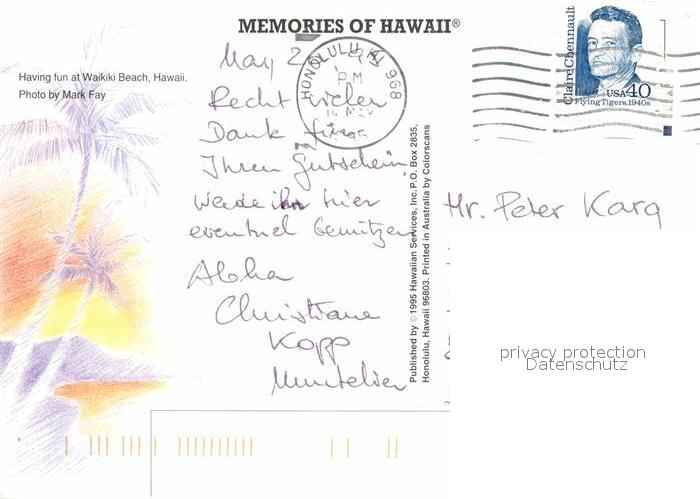 MEMORIES OF HAWAII®
Having fun at Waikiki Beach, Hawaii.
Photo by Mark Fay
May 2
Recht vielen
Dank für
Ihren Gutschein,
werde ihn hier
eventuel benützen
Aloha
Christiane
Kopp
Muntelier
HONOLULU HI 968
PM
MAY
Claire Chennault
USA 40
Flying Tigers, 1940s
Mr. Peter Karg
Published by © 1995 Hawaiian Services, Inc. P.O. Box 2835,
Honolulu, Hawaii 96803. Printed in Australia by Colorscans
privacy protection
Datenschutz